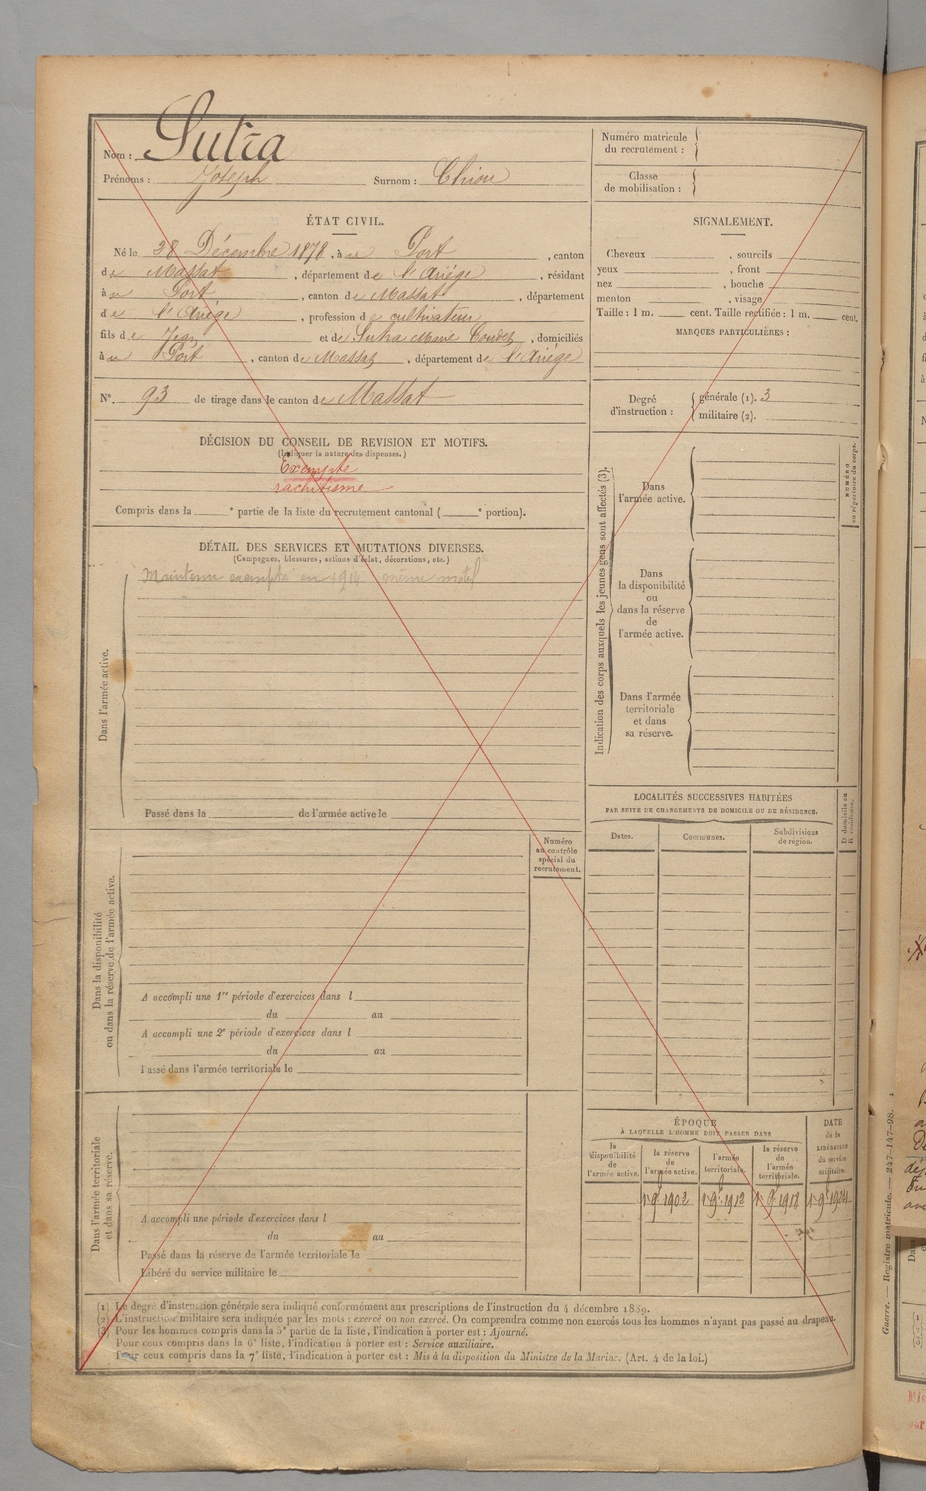 Nom : Sutra
Prénoms : Joseph Surnom : Chiou
Numéro matricule
du recrutement :
Classe
de mobilisation :
ÉTAT CIVIL.
Né le 28 Décembre 1878, à u Port, canton
de Massat, département de l'Ariége, résidant
à u Port, canton de Massat, département
de l'Ariége, profession de cultivateur
fils de Jean et de Sutra Marie, domiciliés
à u Port, canton de Massat, département de l'Ariége
N°. 93 de tirage dans le canton de Massat
SIGNALEMENT.
Cheveux , sourcils
yeux , front
nez , bouche
menton , visage
Taille : 1 m. cent. Taille rectifiée : 1 m. cent.
MARQUES PARTICULIÈRES :
Degré
d'instruction :
générale (1). 3
militaire (2).
DÉCISION DU CONSEIL DE REVISION ET MOTIFS.
(Indiquer la nature des dispenses.)
Exempté
rachitisme
Compris dans la e partie de la liste du recrutement cantonal ( e portion).
DÉTAIL DES SERVICES ET MUTATIONS DIVERSES.
(Campagnes, blessures, actions d'éclat, décorations, etc.)
Maintenu exempté en 1914 même motif
Dans l'armée active.
Passé dans la de l'armée active le
Indication des corps auxquels les jeunes gens sont affectés (3).
Dans
l'armée active.
Dans
la disponibilité
ou
dans la réserve
de
l'armée active.
Dans l'armée
territoriale
et dans
sa réserve.
NUMÉRO
ou répertoire du corps.
LOCALITÉS SUCCESSIVES HABITÉES
PAR SUITE DE CHANGEMENTS DE DOMICILE OU DE RÉSIDENCE.
Dates. Communes. Subdivisions
de région.
D domicile ou
R résidence.
Numéro
au contrôle
spécial du
recrutement.
Dans la disponibilité
ou dans la réserve de l'armée active.
A accompli une 1re période d'exercices dans l
du au
A accompli une 2e période d'exercices dans l
du au
Passé dans l'armée territoriale le
Dans l'armée territoriale
et dans sa réserve.
A accompli une période d'exercices dans l
du au
Passé dans la réserve de l'armée territoriale le
Libéré du service militaire le
ÉPOQUE
À LAQUELLE L'HOMME DOIT PASSER DANS
la
disponibilité
de
l'armée active.
la réserve
de
l'armée active.
l'armée
territoriale.
la réserve
de
l'armée
territoriale.
DATE
de la
LIBÉRATION
du service
militaire.
1er 9bre 1902 1er 9bre 1912 1er 9bre 1918 1er 9bre 1924
(1) Le degré d'instruction générale sera indiqué conformément aux prescriptions de l'instruction du 4 décembre 1889.
(2) L'instruction militaire sera indiquée par les mots : exercé ou non exercé. On comprendra comme non exercés tous les hommes n'ayant pas passé au drapeau.
(3) Pour les hommes compris dans la 5e partie de la liste, l'indication à porter est : Ajourné.
Pour ceux compris dans la 6e liste, l'indication à porter est : Service auxiliaire.
Pour ceux compris dans la 7e liste, l'indication à porter est : Mis à la disposition du Ministre de la Marine. (Art. 4 de la loi.)
Guerre. — Registre matricule. — 247-147-98.